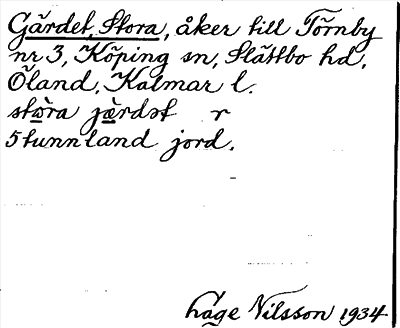 Gärdet, Stora, åker till Törnby
nr 3, Köping sn, Slättbo hd,
Öland, Kalmar l.
stọ̀ra jæ̀rdət r
5 tunnland jord.
Åge Nilsson 1934